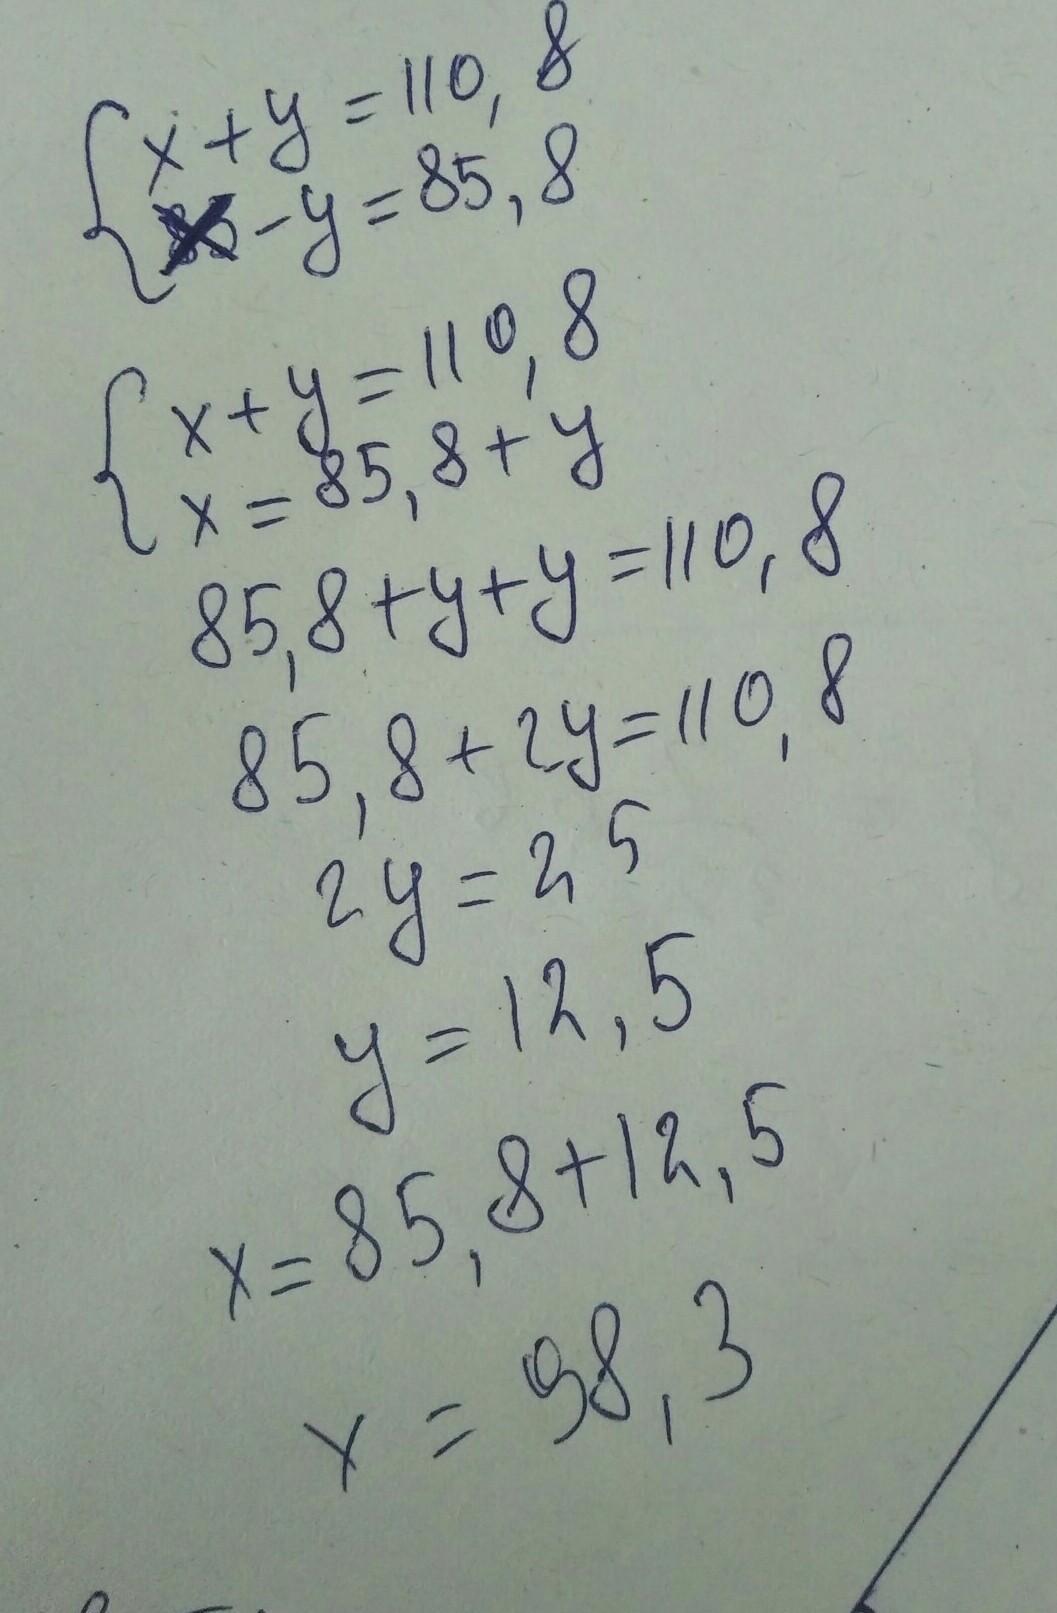 x + y = 110,8
x - y = 85,8
x + y = 110,8
x = 85,8 + y
85,8 + y + y = 110,8
85,8 + 2y = 110,8
2y = 25
y = 12,5
x = 85,8 + 12,5
x = 98,3